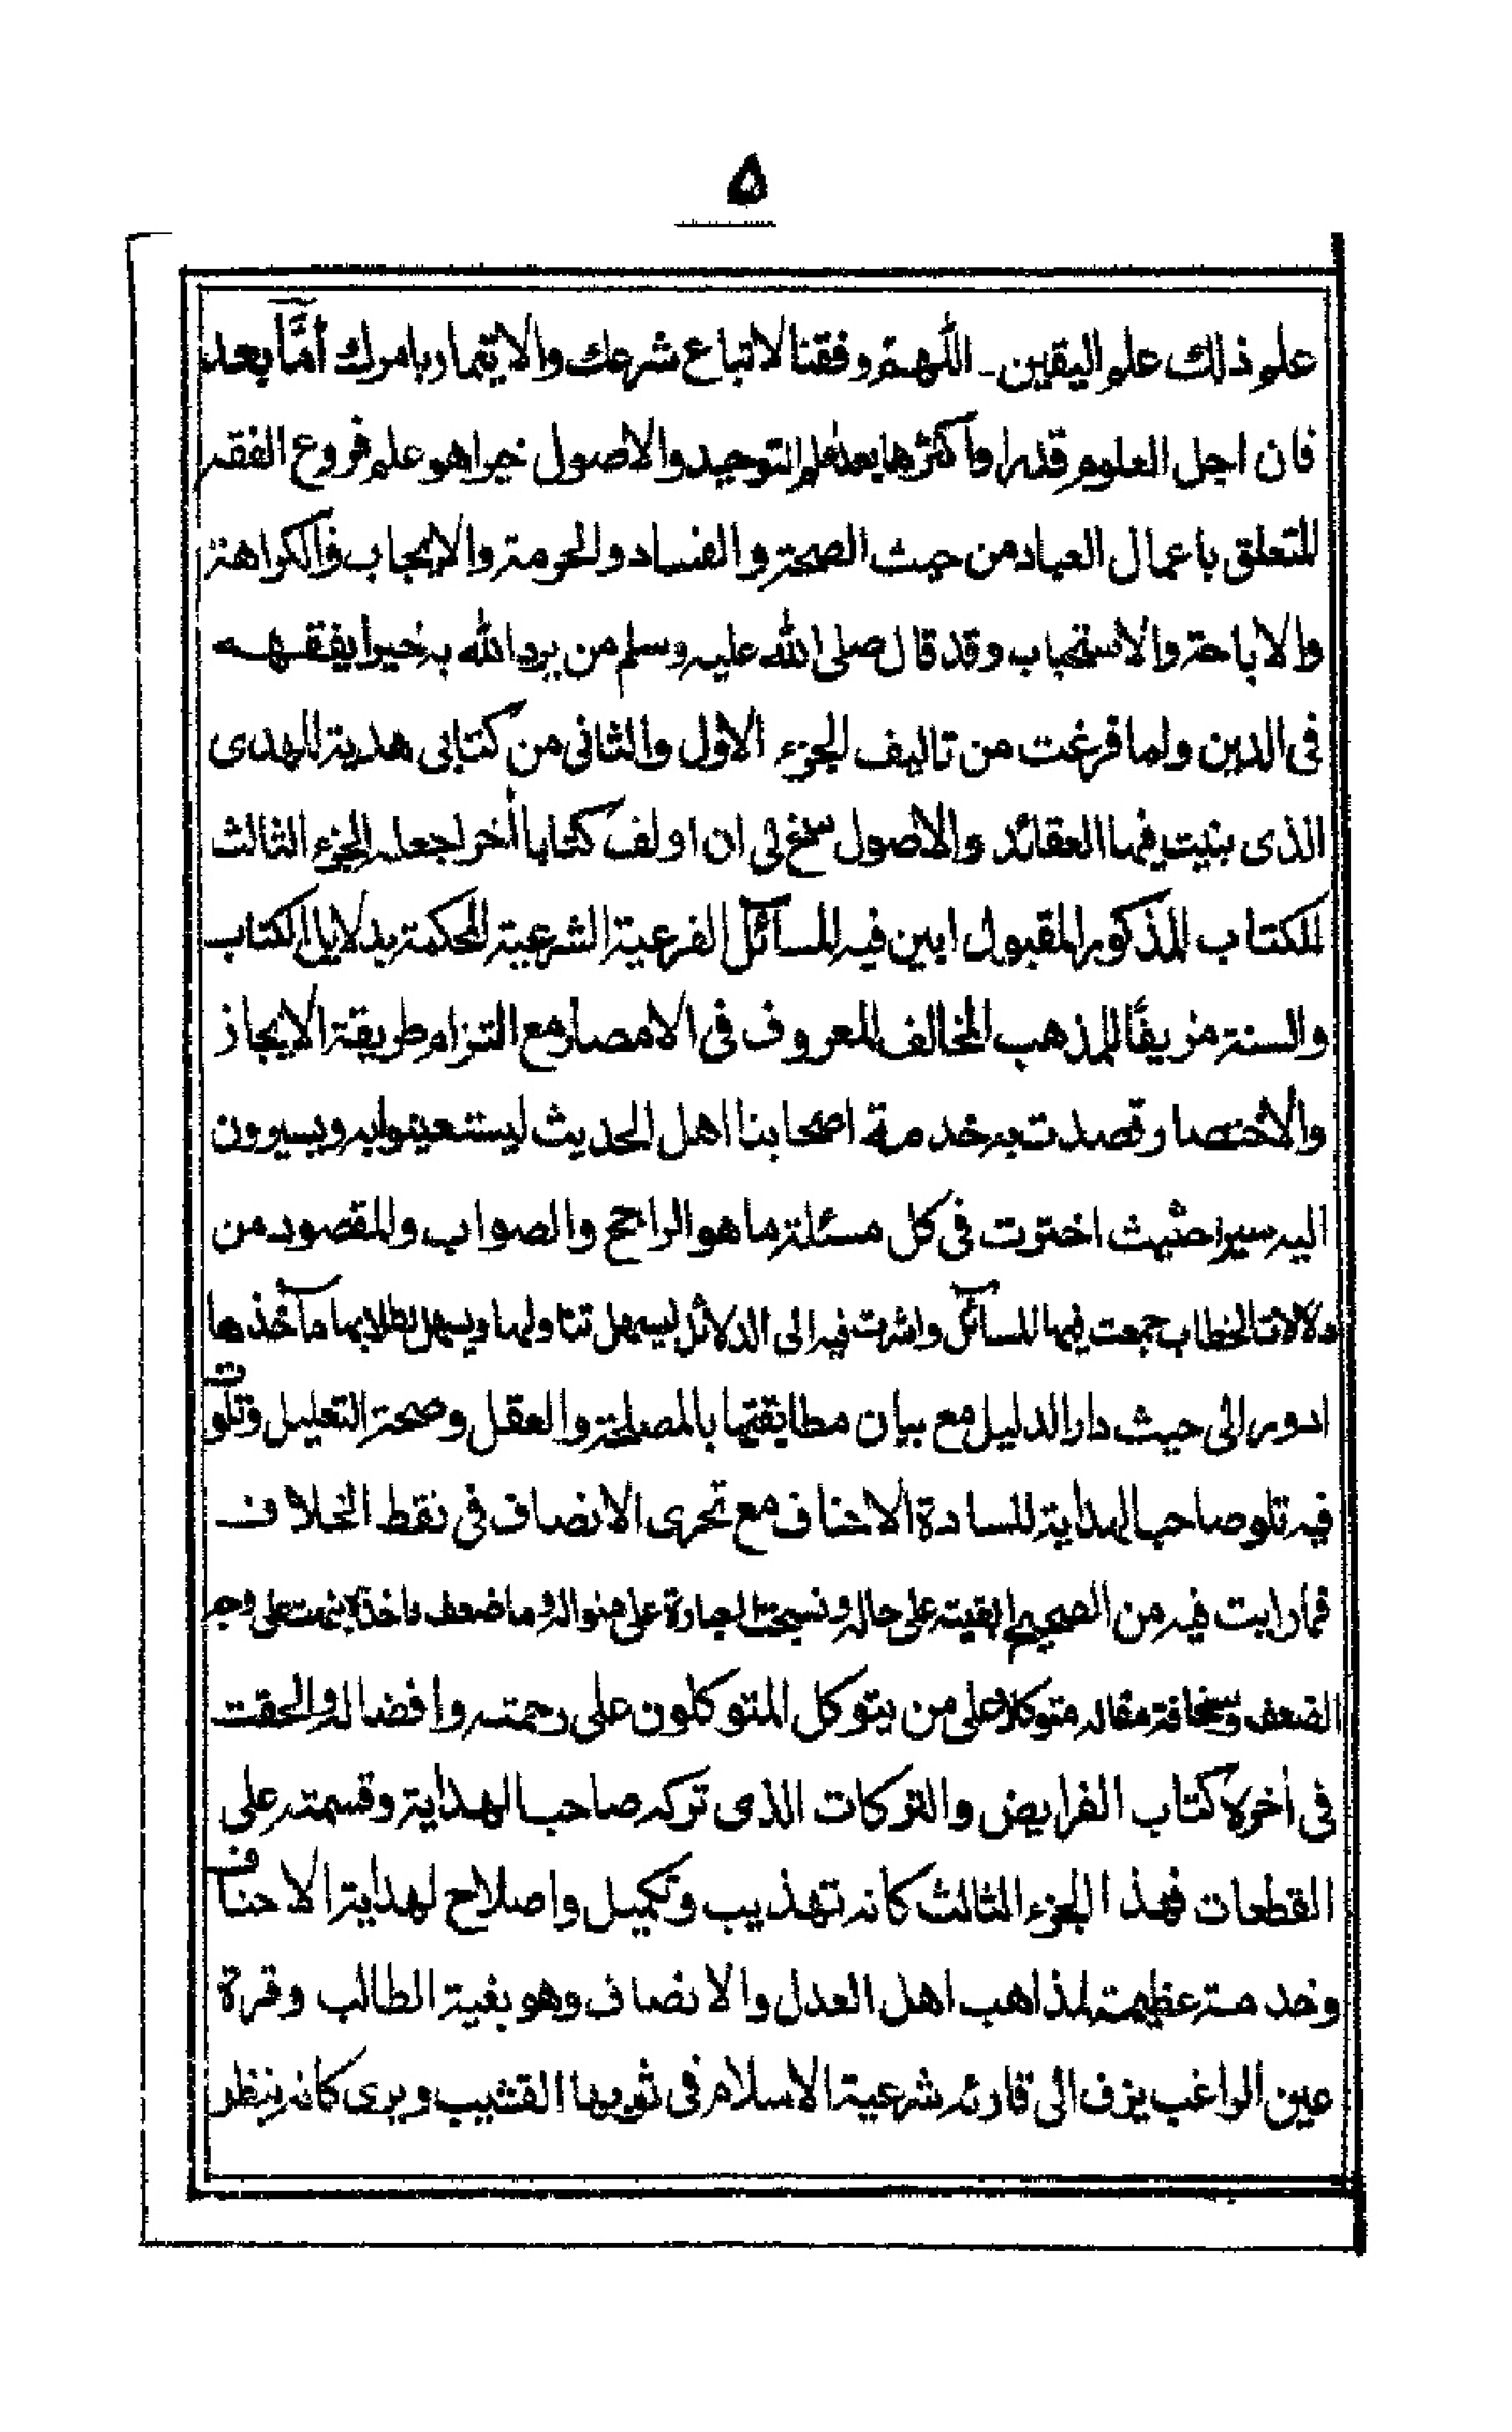 ۵
علم ذلك علم اليقين۔ اللّهم وفقنا لاتباع شرعك والايتمار بامرك أمَّا بعد
فان اجل العلوم قدرا واكثرها بعد علم التوحيد والاصول خيرا هو علم فروع الفقه
المتعلق باعمال العباد من حيث الصحة والفساد والحرمة والايجاب والكراهة
والاباحة والاستحباب وقد قال صلى الله عليه وسلم من يرد الله به خيرا يفقهه
فى الدين ولما فرغت من تاليف الجزء الاول والثانى من كتابى هدية المهدى
الذى بنيت فيها العقائد والاصول سنح لى ان اولف كتابا أخر اجعله الجزء الثالث
للكتاب المذكور المقبول ابين فيه المسائل الفرعية الشرعية المحكمة بدلايل الكتاب
والسنة مزيفًا للمذهب المخالف المعروف فى الامصار مع التزام طريقة الايجاز
والاختصار وقصدت به خدمة اصحابنا اهل الحديث ليستعينوا به ويسيرون
اليه سيرا حثيث اخترت فى كل مسئلة ما هو الراجح والصواب والمقصود من
دلالات الخطاب جمعت فيها المسائل واشرت فيه الى الدلائل ليسهل تناولها ويسهل لطلابها مآخذها
ادور الى حيث دار الدليل مع بيان مطابقتها بالمصلحة والعقل وصحة التعليل وتلوت
فيه تلو صاحب الهداية للسادة الاحناف مع تحرى الانصاف فى نقط الخلاف
فما رايت فيه من الصحيح ابقيته على حاله ونسجت العبارة على منواله وما ضعف ماخذه نبهت على وجه
الضعف وسخافة مقاله متوكلا على من يتوكل المتوكلون على رحمته وافضاله والحقت
فى أخره كتاب الفرايض والتركات الذى تركه صاحب الهداية وقسمته على
القطعات فهذا الجزء الثالث كانه تهذيب وتكميل واصلاح لهداية الاحناف
وخدمة عظيمة لمذاهب اهل العدل والانصاف وهو بغية الطالب وقرة
عين الراغب يزف الى قارئه شرعية الاسلام فى ثوبها القشيب ويرى كانه ينظر